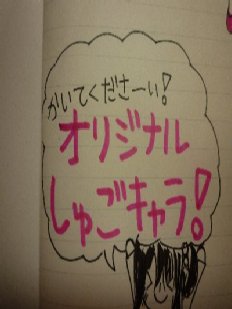 かいてくださーい!
オリジナル
しゅごキャラ!